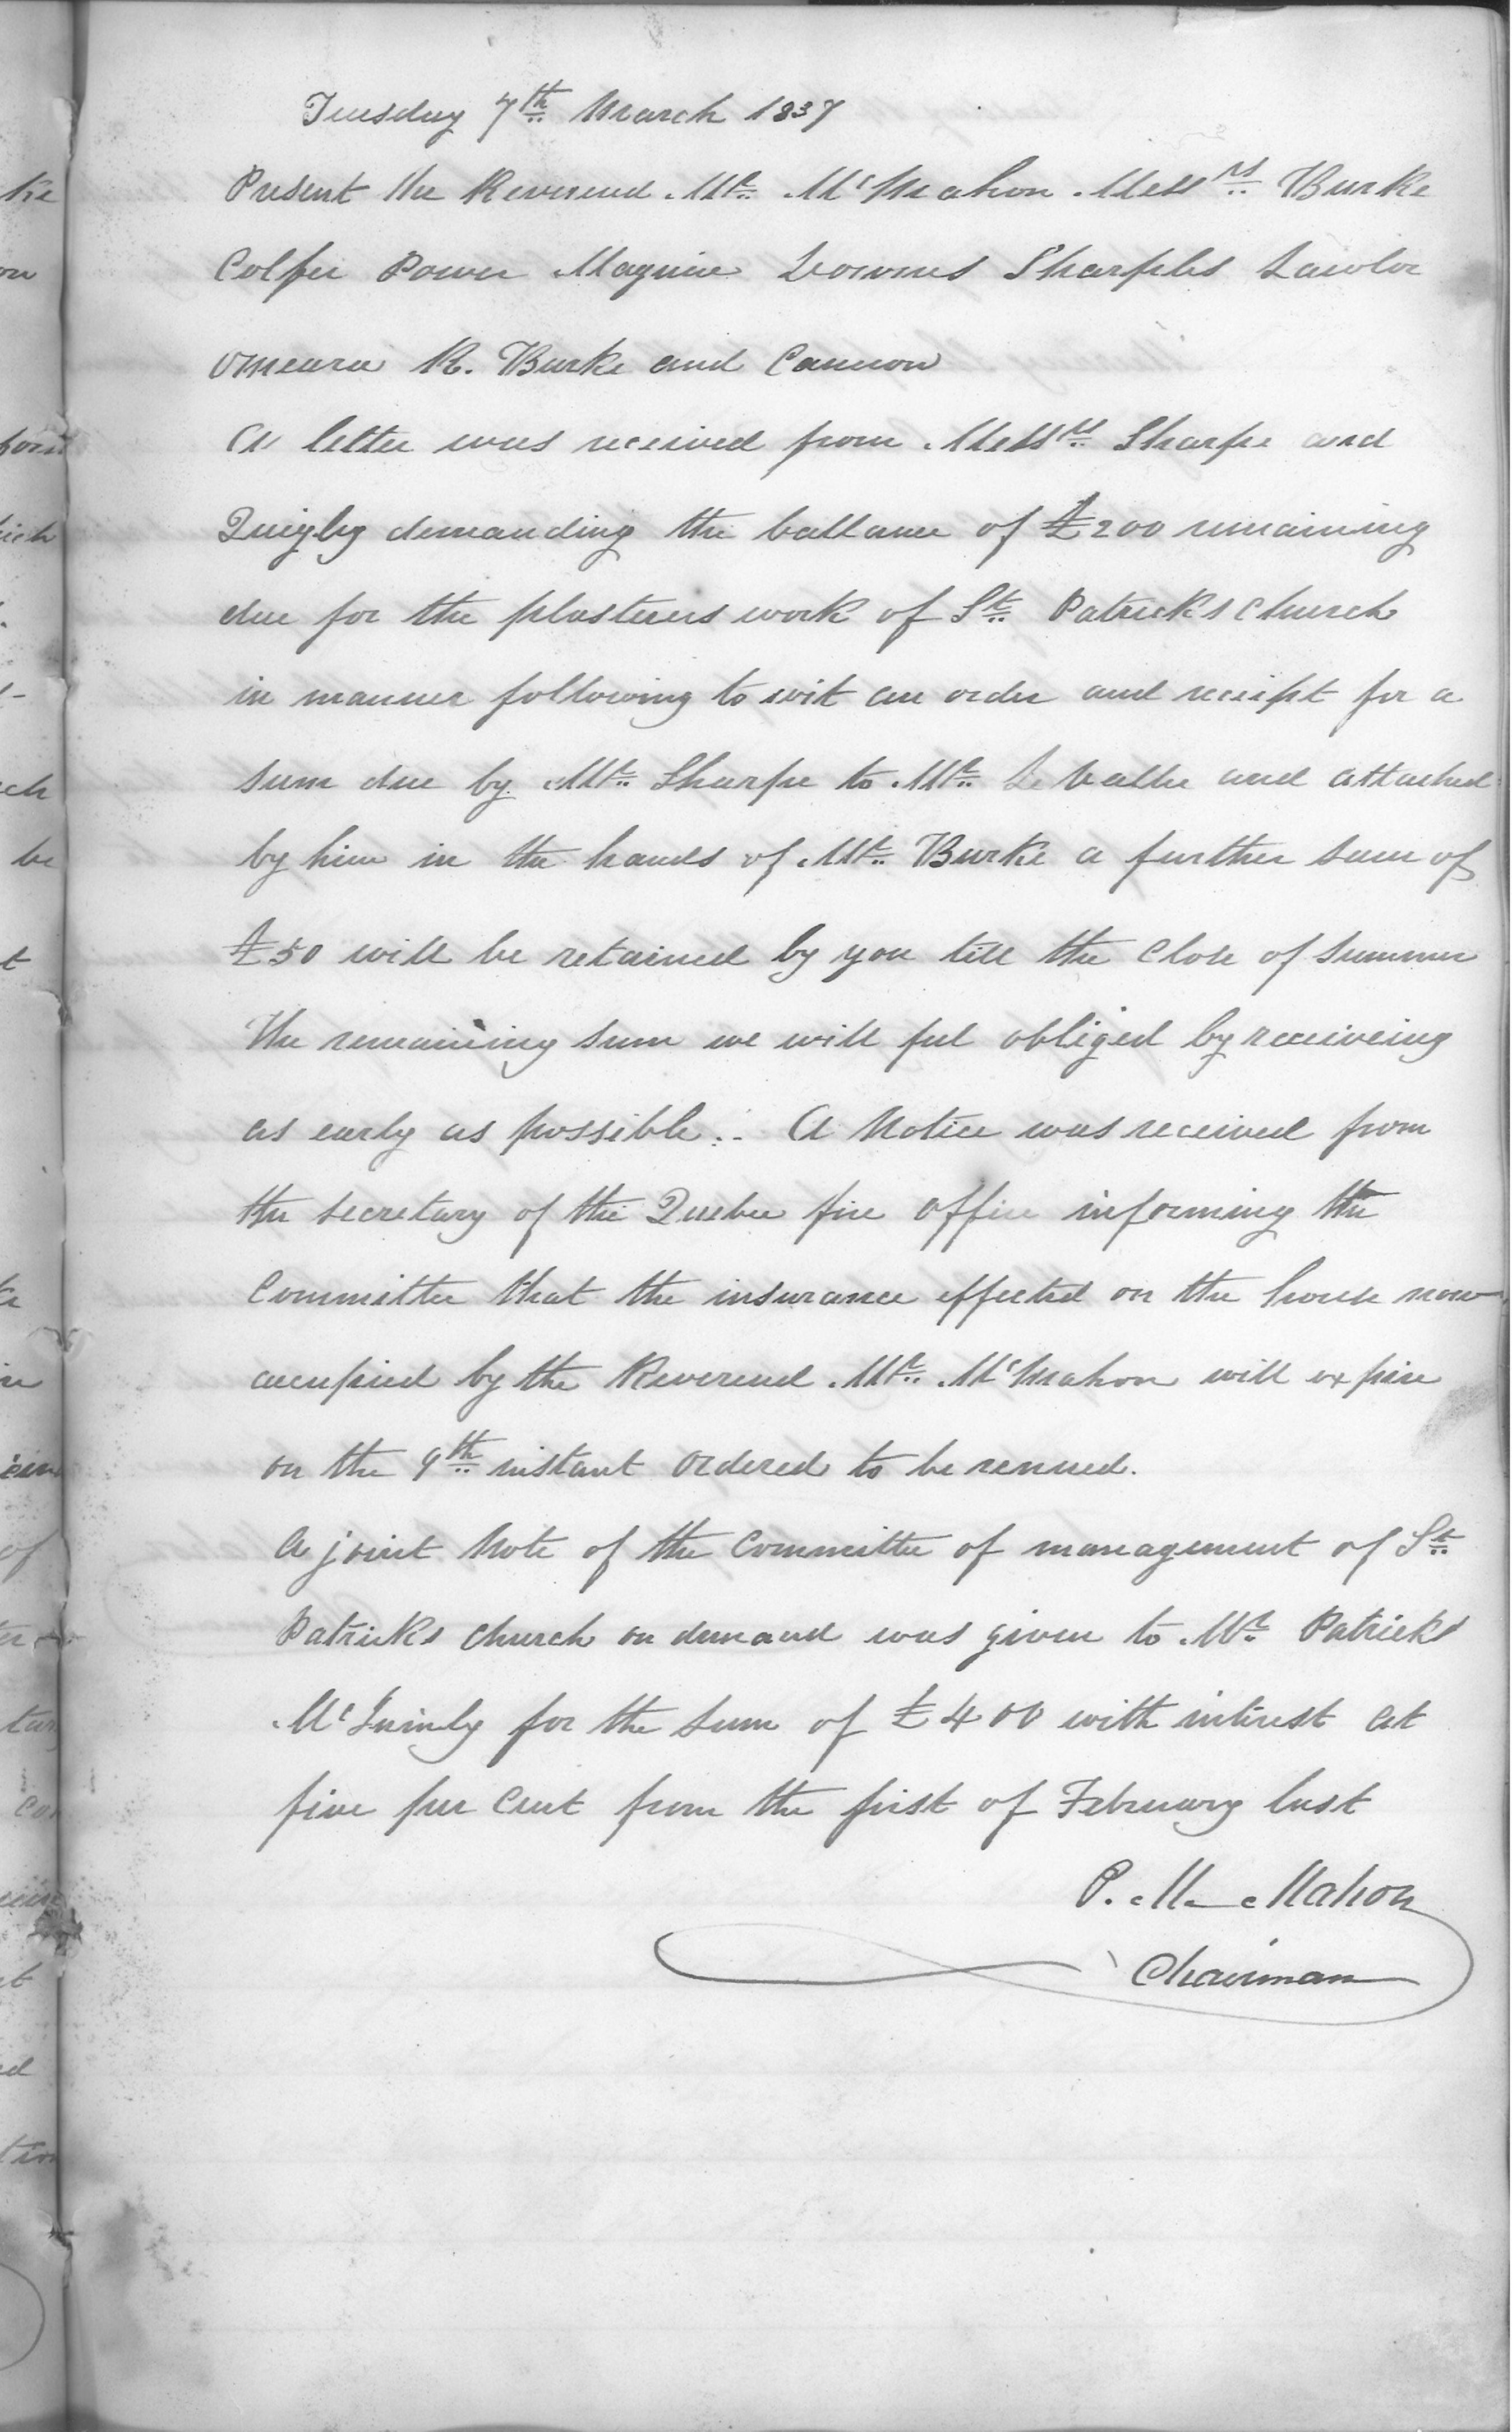 Tuesday 7th March 1837
Present the Reverend Mr McMahon Messrs Burke
Colfer Power Maguire Downes Sharples Lawlor
Omeara R. Burke and Cannon
A letter was received from Messrs Sharpe and
Quigley demanding the ballance of £200 remaining
due for the plasterers work of St Patricks church
in manner following to wit an order and receipt for a
sum due by Mr Sharpe to Mr Le Vallee and attached
by him in the hands of Mr Burke a further sum of
£50 will be retained by you till the close of summer
The remaining sum we will feel obliged by receiveing
as early as possible. A Notice was received from
the secretary of the Quebec fire office informing the
Committee that the insurance effected on the house now
occupied by the Reverend Mr McMahon will expire
on the 9th instant ordered to be renued.
A joint Note of the Committee of management of St
Patricks church on demand was given to Mr Patrick
McGuinly for the sum of £400 with interest at
five per Cent from the first of February last
P. McMahon
Chairman
ke
on
ich
ch
be
t
of
ed